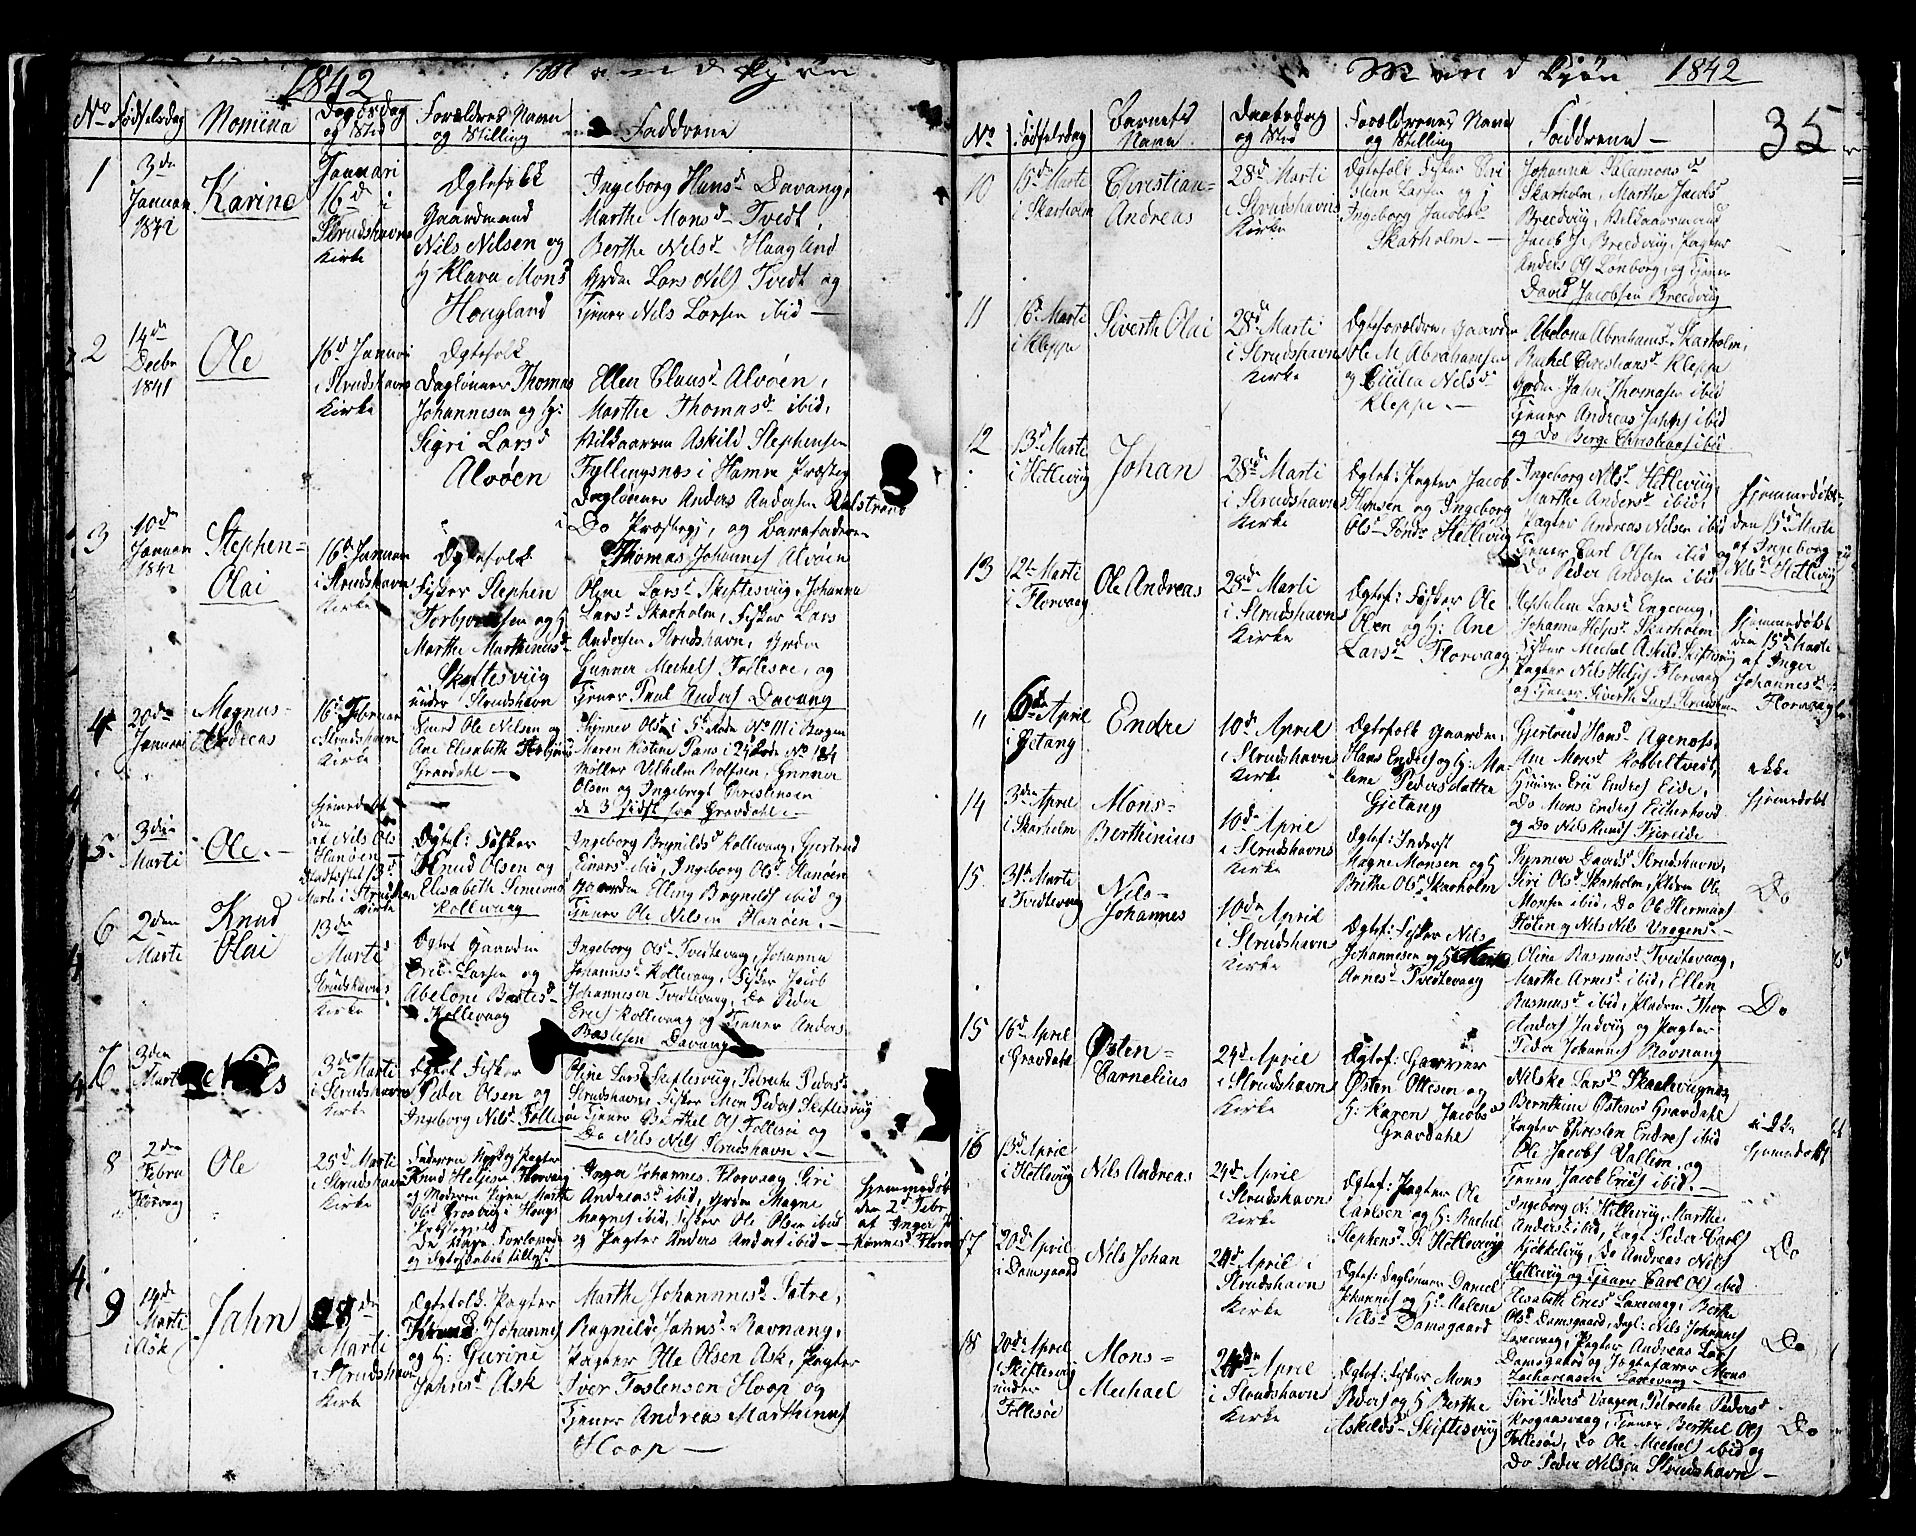 1842
No
Fødselsdag
Nomina
og Sted
Forældres Navn
og Stilling
Faddrene
1
3de
Januari
1842
Karine
Januari
16d i
Strudshavns
Kirke
Ægtefolk
Gaardmand
Nils Nilsen og
Klara Monsd
Hougland
Ingeborg Hansd Davang,
Marthe Monsd Tvedt
Berthe Nilsd Haagland
Lars Nils Tvedt og
Tjener Nils Larsen ibid
2
14de
Decbr
1841
Ole
16d Januari
i Strudshavns
Kirke
Ægtefolk
Daglønner Thomas
Johannesen og H:
Sigri Larsd
Alvøen
Ellen Clausd Alvøen,
Marthe Thomasd ibid,
Askild Stephensen
Fyllingsnæs i Hamre Præsteg
Daglønner Anders Andersen
i Do Præstegj, og Barnefaderen
Thomas Johannes Alvøen
3
10de
Januari
1842
Stephen-
Olai
16d Januari
i Strudshavns
Kirke
Ægtefolk
Fisker Stephen
Torbjørnsen og H
Marthe Marthinusd
Skiftesviig
under Strudshavn
Oline Larsd Skiftesviig, Johanna
Larsd Skarholm, Fisker Lars
Andersen Strudshavn,
Gunner Mechels Follesøe, og
Tjener Paul Anders Davang
4
20de
Januari
Magnus-
Andreas
16d Februar
i Strudshavns
Kirke
Ole Nilsen og
Ane Elisabeth
Gravdahl
Maren Kistine
Møller Vilhelm Rolfsen, Gunner
Olsen og Ingebregt Christensen
de 3 sidst fra Gravdahl
5
3die
Marti
Ole
af Nils Ols
Hanøen
Ægtef: Fisker
Knud Olsen og
Elisabeth Simensd
Kollevaag
Ingeborg Brynildsd Kollevaag, Gjertrud
Einarsd ibid, Ingeborg Olsd Hanøen
Elling Brynilds ibid og
Tjener Ole Nilsen Hanøen
6
2den
Marti
Knud
Olai
13de
Marti
Strudshavns
Kirke
Ægtef Gaardm
Eric Larsen og
Abelone Bastesd
Kollevaag
Ingeborg Olsd Tvedtevaag, Johanna
Johannesd Kollevaag, Fisker Jacob
Johannesen Tvedtevaag, Do Peder
Erics Kollevaag og Tjener Anders
Bastesen Davang
7
3den
Marti
Nils
3de Marti
i Strudshavns
Kirke
Ægtef Fisker
Peder Olsen og
Ingeborg Nilsd Follesøe
Oline Larsd Skiftesviig, Petreche Pedersd
Strudshavn, Fisker Mon Peders Skiftesviig
Tjener Berthel Ols Follesøe og
Do Nils Nils Strudshavn
8
2den
Febru
Florvaag
Ole
25d Marti
i Strudshavns
Kirke
Knud Helgesen Florvaag
og Moderen Pigen Marthe
Inger Johannesd Florvaag Siri
Andreasd ibid, Magne
Magnes ibid, Fisker Ole Olsen ibid
og Pagter Anders Anders ibid
Hjemmedøbt
den 2d Febr
af Inger Jo
hannesd Florv
9
14de
Marti
i Ask
Jahn
Marti
i Strudshavns
Kirke
Ægtefolk Pagter
Knud Johannes
og H: Gurine
Jahnsd Ask
Marthe Johannesd Sætre,
Ragnilde Jahnsd Ravnang,
Pagter Otte Olsen Ask, Pagter
Iver Tostensen Hoop og
Tjener Andreas Marthinus
Hoop
Mandkjøn 1842
35
No
Fødselsdag
Barnets
Navn
Daabsdag
og Sted
Forældrenes Navn
og Stilling
Faddrene
10
15d Marti
i Skarholm
Christian-
Andreas
28d Marti
i Strudshavns
Kirke
Ægtefolk Fisker Chri
stian Larsen og
Ingeborg Jacobsd
Skarholm
Johanna Salamonsd
Skarholm, Marthe Jacobsd
Breedviig,
Jacob Breedviig, Pagter
Anders Ols Lønborg, og Tjener
David Jacobsen Breedviig
11
16d Marti
i Kleppe
Siverth Olai
28d Marti
i Strudshavns
Kirke
Ægteforældre, Gaardm
Ole M Abrahamsen
og Cicilia Nilsd
Kleppe
Abelona Abrahamsd Skarholm,
Rachel Christiansd Kleppe
Jahn Thomasen ibid
Tjener Andreas Jahns ibid
og Do Berge Christians ibid
12
13d Marti
i Hetleviig
Johan
28d Marti
i Strudshavns
Kirke
Ægtef: Pagter Jacob
Hansen og Ingeborg
Olsd Hetleviig
Ingeborg Nilsd Hetleviig,
Marthe Andersd ibid,
Pagter Andreas Nilsen ibid
Tjener Carl Olsen ibid og
Do Peder Andersen ibid
Hjemmedøbt
den 15d Marti
af Ingeborg
Nilsd Hetleviig
13
12te Marti
i Florvaag
Ole Andreas
28de Marti
i Strudshavns
Kirke
Ægtef: Fisker Ole
Olsen og H: Ane
Larsd Florvaag
Larsd Engevaag,
Johanna Skarholm
Fisker Mechal Askilds Skiftesviig
Pagter Nils Helges Florvaag
og Tjener Siverth Lars Strudshavn
Hjemmedøbt
den 15de Marti
af Inger
Johannesd
Florvaag
11
6te April
i Gjetang
Endre
10d April
i Strudshavns
Kirke
Ægtefolk Gaardm,
Hans Endres og H: Ma-
lene Pedersdatter
Gjetang
Gjertrud Hansd Agenæss,
Ane Monsd Kobbeltvedt,
Eric Endres Eide,
Do Mons Endres
og Do Nils Knuds Fjereide
ikke
hjemmedøbt
14
3den April
i Skarholm
Mons-
Berthinius
10de April
i Strudshavns
Kirke
Ægtef: Inderst
Magne Monsen og H
Brithe Olsd Skarholm
Synneve Davidsd Strudshavn,
Siri Olsd Skarholm, Ole
Monsen ibid, Do Ole Hermans
Fløten og Nils Nils Vragen
Do
15
31te Marti
i Tvedtevaag
Nils-
Johannes
10de April
i Strudshavns
Kirke
Ægtef: Fisker Nils
Johannesen og H Marthe
Arnesd Tvedtevaag
Olina Rasmusd Tvedtevaag,
Marthe Arnesd ibid, Ellen
Rasmusd ibid, Thor
Anders Jadviig og Pagter
Peder Johannes Ravnang
Do
15
16d April
i Gravdahl
Østen-
Cornelius
24d April
i Strudshavns
Kirke
Ægtef: Garver
Østen Ottesen og
H: Karen Jacobsd
Gravdahl
Nilske Larsd
Bernthine Østensd Gravdahl
Pagter Christen Endres ibid
Ole Jacobs Vallem, og
Tjener Jacob Erics ibid
ikke
hjemmedøbt
16
13d April
i Hetleviig
Nils Andreas
24de April
i Strudshavns
Kirke
Ægtef: Pagter Ole
Carlsen og H: Rachel
Stephensd Hetleviig
Ingeborg Hetleviig, Marthe
Andersd ibid, Pagt: Peder Carls
Kjøkkelviig, Do Andreas Nils
Hetleviig og Tjener Carl Ols ibid
Do
17
20d April
i Damsgaard
Nils Johan
24de April i
Strudshavns
Kirke
Ægtef: Daglønner Daniel
Johannes og H: Malene
Nilsd Damsgaard
Elisabeth Ericsd Laxevaag, Berthe
Olsd Damsgaard, Dagl: Nils Johannes
Laxevaag, Pagter Andreas Lars
Damsgaard og Jægtefarer Mons
Zachariasen Laxevaag
Do
18
20de April
i Skiftesviig
under
Follesøe
Mons-
Mechael
24de April
i Strudshavns
Kirke
Ægtef: Fisker Mons
Peders og H Berthe
Askildsd Skiftesviig
Siri Pedersd Vragen, Petreche Pedersd
Krogaasvaag, Tjener Berthel Ols
Follesøe, Do Ole Mechels ibid og
Do Peder Nilsen Strudshavn
Do